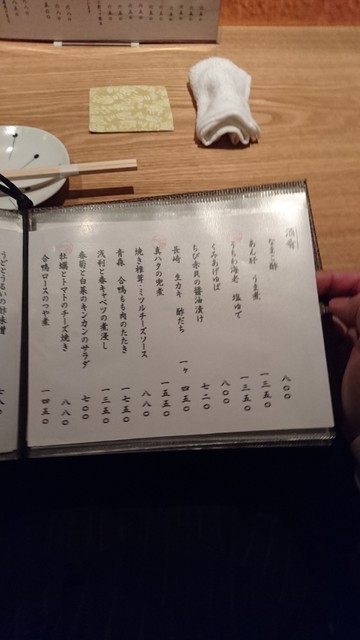 酒肴
なまこ酢 八〇〇
あん肝 うま煮 一三五〇
うちわ海老 塩ゆで 一三五〇
くみあげゆば 八〇〇
ちび赤貝の醤油漬け 七二〇
長崎 生カキ 酢だち 一ケ 四五〇
真ハタの兜煮 一五五〇
焼き椎茸 ミソルチーズソース 八八〇
青森 合鴨もも肉のたたき 一七五〇
浅利と春キャベツの煮浸し 一三五〇
春菊と白菜のキンカンのサラダ 七〇〇
牡蠣とトマトのチーズ焼き 八八〇
合鴨ロースのつや煮 一四五〇
うどとうるいの酢味噌 七八〇